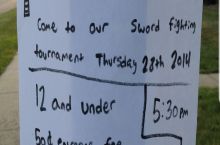 Come to our Sword fighting
tournament Thursday 28th 2014
12 and under
5:30 pm
50¢ entrance fee